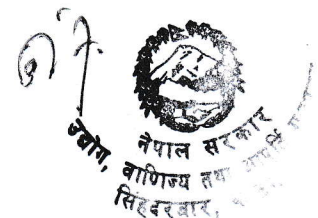 नेपाल सरकार
उद्योग, वाणिज्य तथा आपूर्ति
सिंहदरबार,